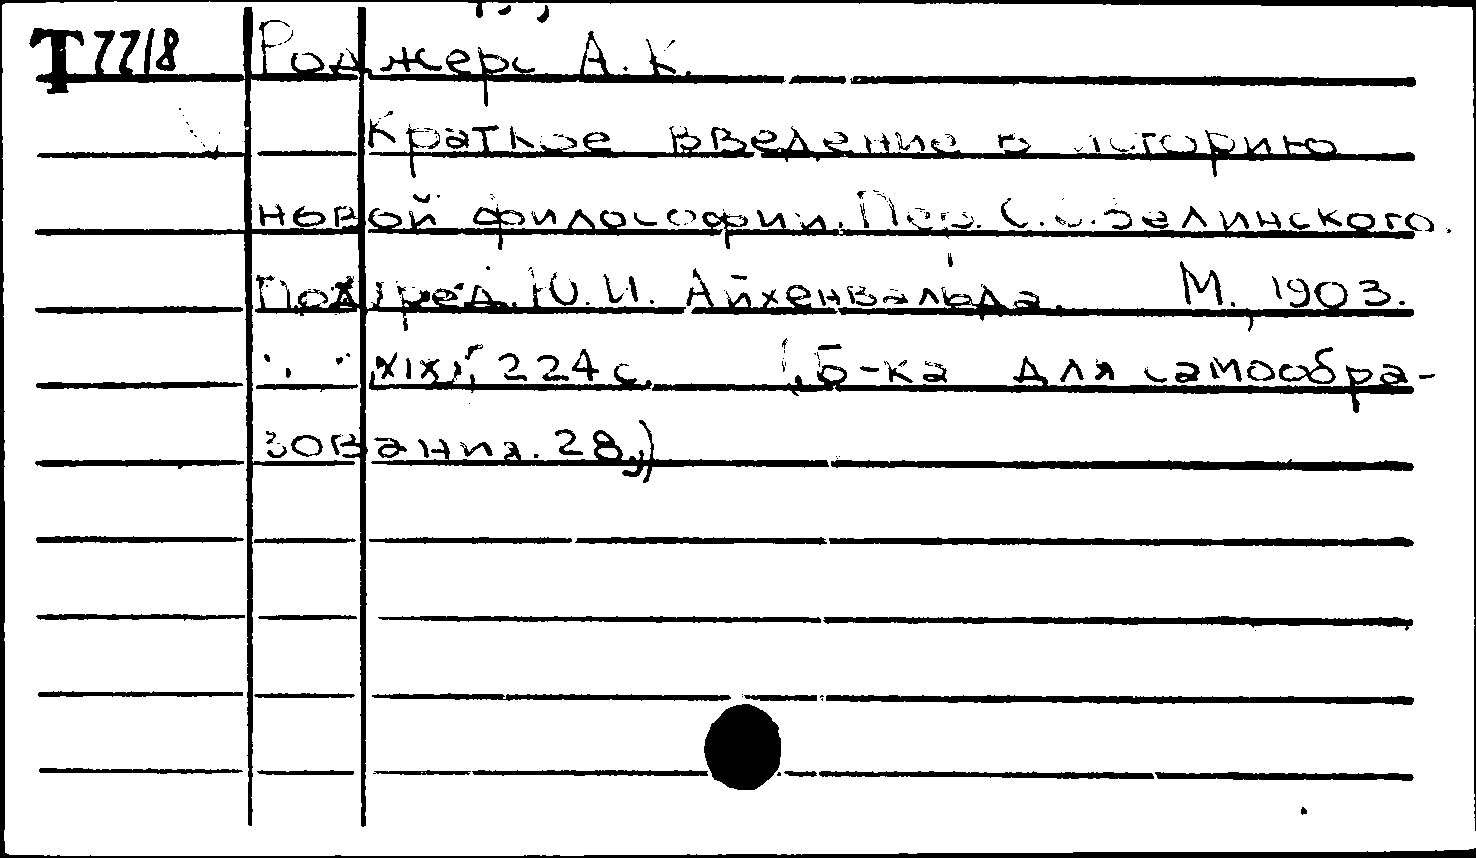 T 7718 Роджерс А. К.
Краткое введение в историю
новой философии. Пер. С.С. Зелинского.
Под ред. Ю. И. Айхенвальда. М., 1903.
XIX, 224 с. (Б-ка для самообра-
зования. 28.)